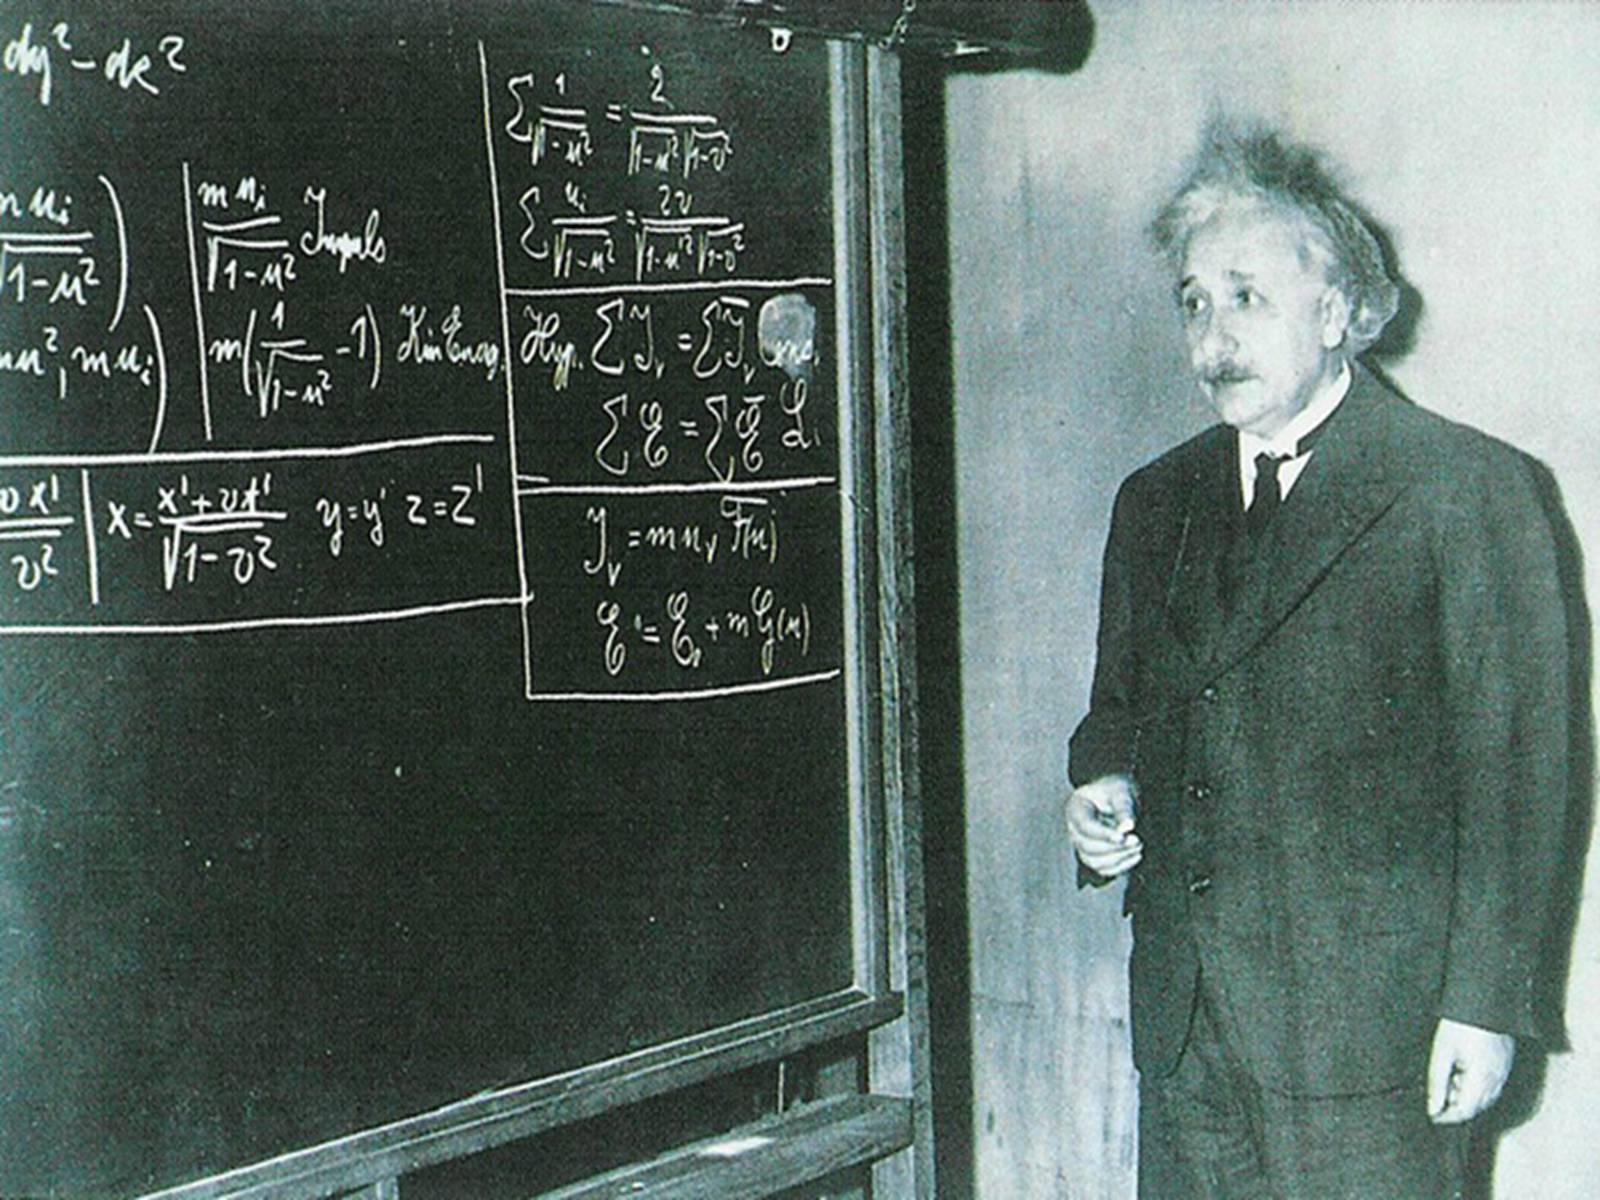 dy² - dz²
m uᵢ / √(1-u²) )
mu², m uᵢ )
m uᵢ / √(1-u²) Impuls
m( 1/√(1-u²) - 1) Kin Energ.
v x' / v² | x = (x' + vt') / √(1-v²) y = y' z = z'
Σ 1/√(1-u²) = 2 / √(1-u'²) √(1-v²)
Σ uᵢ/√(1-u²) = 2v / √(1-u'²) √(1-v²)
Hyp. Σ Iᵥ = Σ I̅ᵥ
Σ E = Σ E̅
Iᵥ = m uᵥ F(u)
E = E₀ + m G(u)